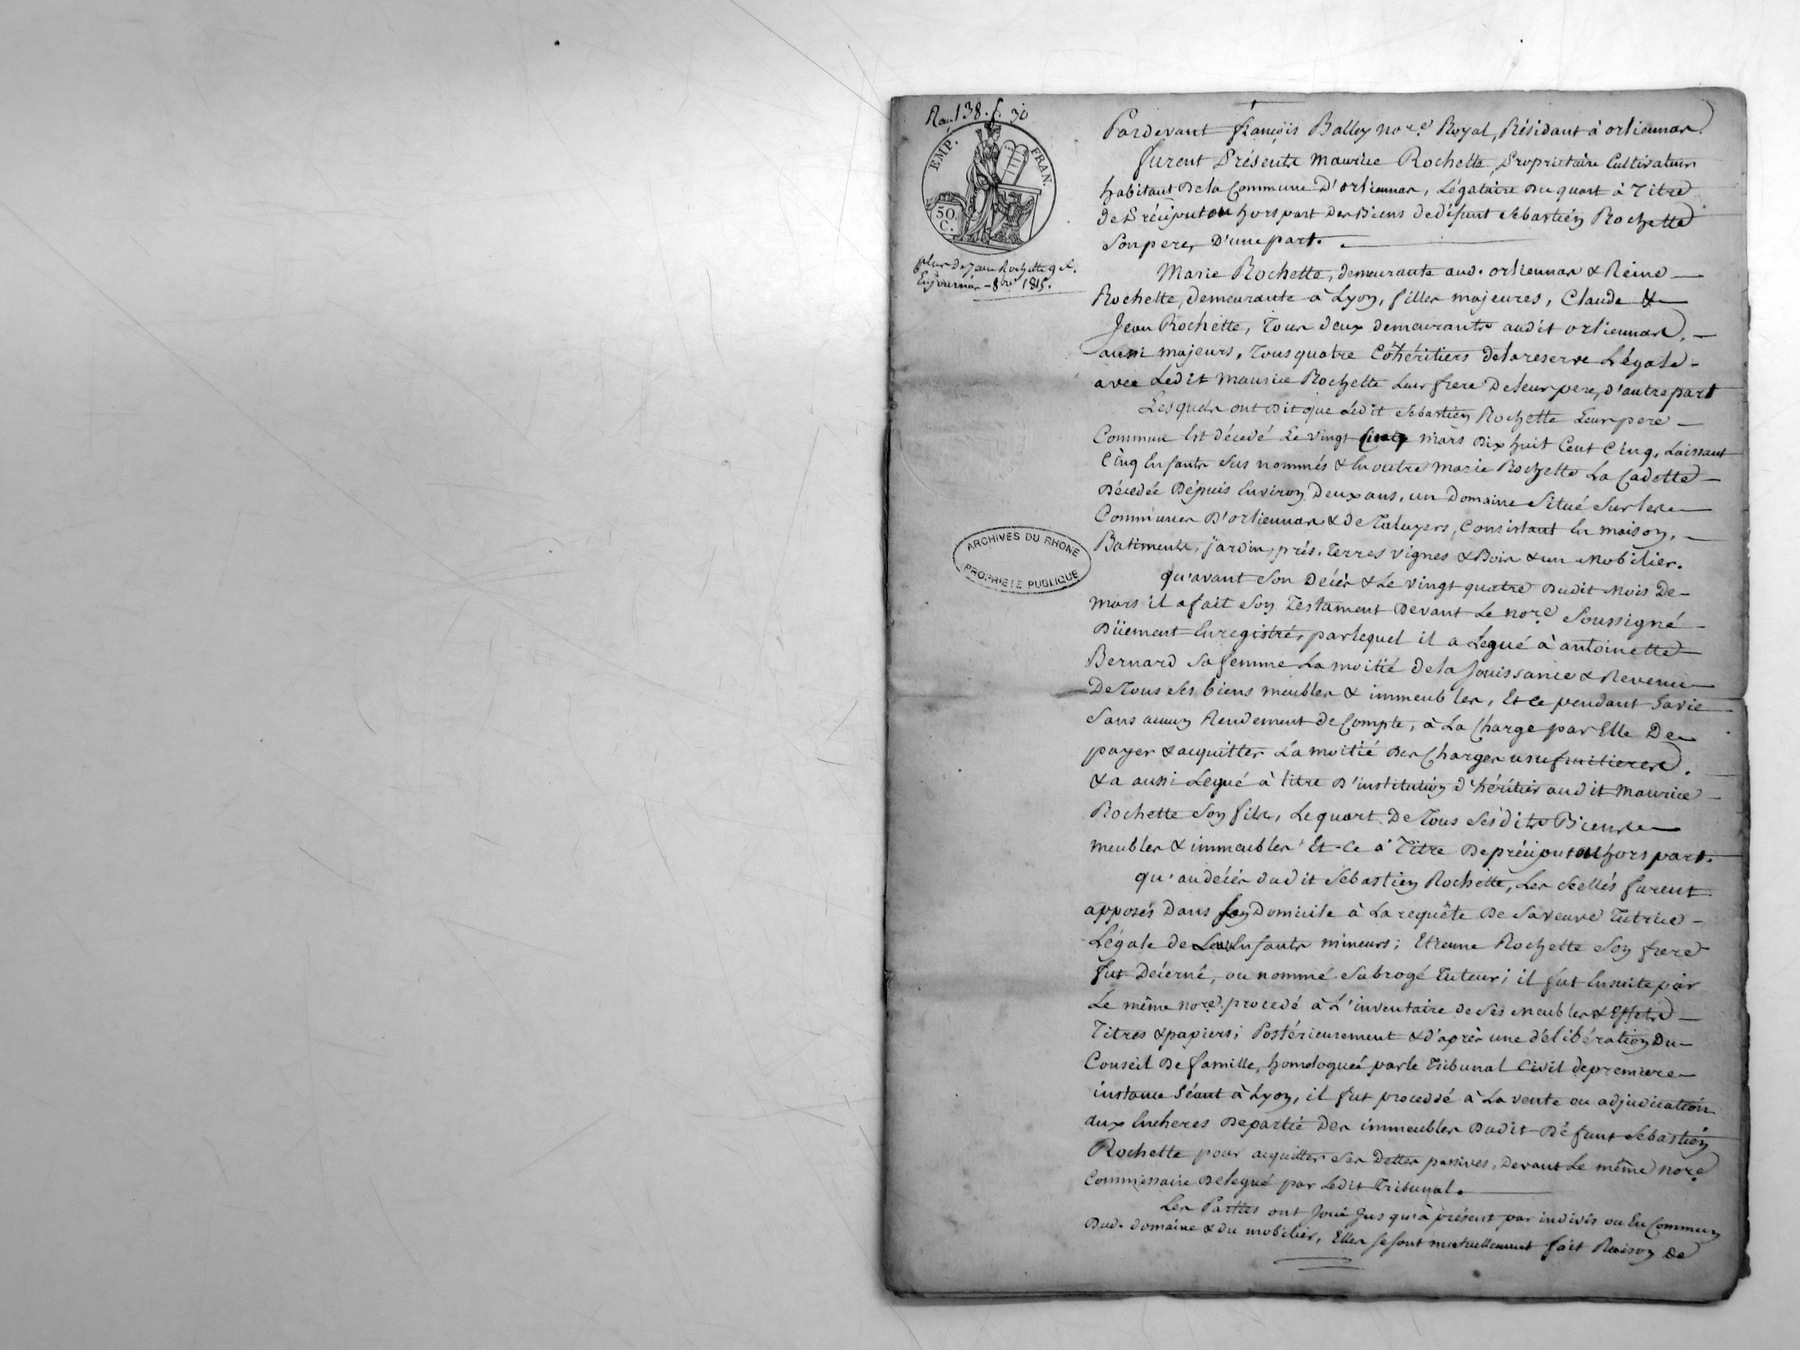 138. f. 30
EMP. FRAN.
50. C.
plus de Jean Rochette
8bre 1815.
ARCHIVES DU RHONE
PROPRIETE PUBLIQUE
Pardevant françois Balley nore. Royal, Résidant à orliennas.
furent Présents Maurice Rochette, Propriétaire Cultivateur
habitant De la Commune D'orliennas, Légataire Du quart à Titre
de Préciput ou hors part Des Biens de défunt Sebastien Rochette
Son pere, D'une part.
Marie Rochette, demeurante aud. orliennas & Reine
Rochette, demeurante à Lyon, filles majeures, Claude &
Jean Rochette, Tous deux demeurants audit orliennas,
aussi majeurs, Tous quatre Cohéritiers de la reserve Légale
avec Ledit Maurice Rochette Leur frere De leur pere, D'autre part
Lesquels ont Dit que Ledit Sebastien Rochette Leur pere
Commun Est décedé Le vingt Cinq mars Dix huit Cent Cinq, Laissant
Cinq Enfants Sus nommés & En outre Marie Rochette La Cadette
Décedée Depuis Environ Deux ans, un Domaine Situé Sur les
Communes D'orliennas & de Taluyers, Consistant En maison,
Batiments, jardin, prés, Terres vignes & Bois & un Mobilier.
qu'avant Son Décès & Le vingt quatre Dudit Mois De
Mars il a fait Son Testament Devant Le nore. Soussigné
Düement Enregistré, par lequel il a Legué à antoinette
Bernard Sa femme La moitié de la Jouissance & Revenu
De Tous Ses biens meubles & immeubles, Et ce pendant Sa vie
Sans aucun Rendement de Compte, à La Charge par Elle De
payer & acquitter La moitié Des Charges usufruitieres.
& a aussi Legué à titre D'institution d'héritier audit Maurice
Rochette Son fils, Le quart De Tous Ses dits Biens
meubles & immeubles Et ce à Titre De préciput ou hors part.
qu'au décès dudit Sébastien Rochette, Les Scellés furent
apposés Dans Son Domicile à La requête De Sa veuve Tutrice
Légale de Enfants mineurs; Etienne Rochette Son frere
fut Décerné, ou nommé Subrogé Tuteur; il fut Ensuite par
Le même nore. procedé à L'inventaire de Ses Meubles & Effets
Titres & papiers; Postérieurement & d'après une délibération Du
Conseil De famille, homologuée par le Tribunal Civil de premiere
instance Séant à Lyon, il fut procedé à La vente ou adjudication
aux Encheres De partie Des immeubles Dudit Défunt Sebastien
Rochette pour acquitter Ses Dettes passives, Devant Le même nore.
Commissaire Delegué par Ledit Tribunal.
Les Parties ont Joui Jusqu'à présent par indivis ou En Commun
Dud. domaine & du mobilier, Elles se sont mutuellement fait Raison De